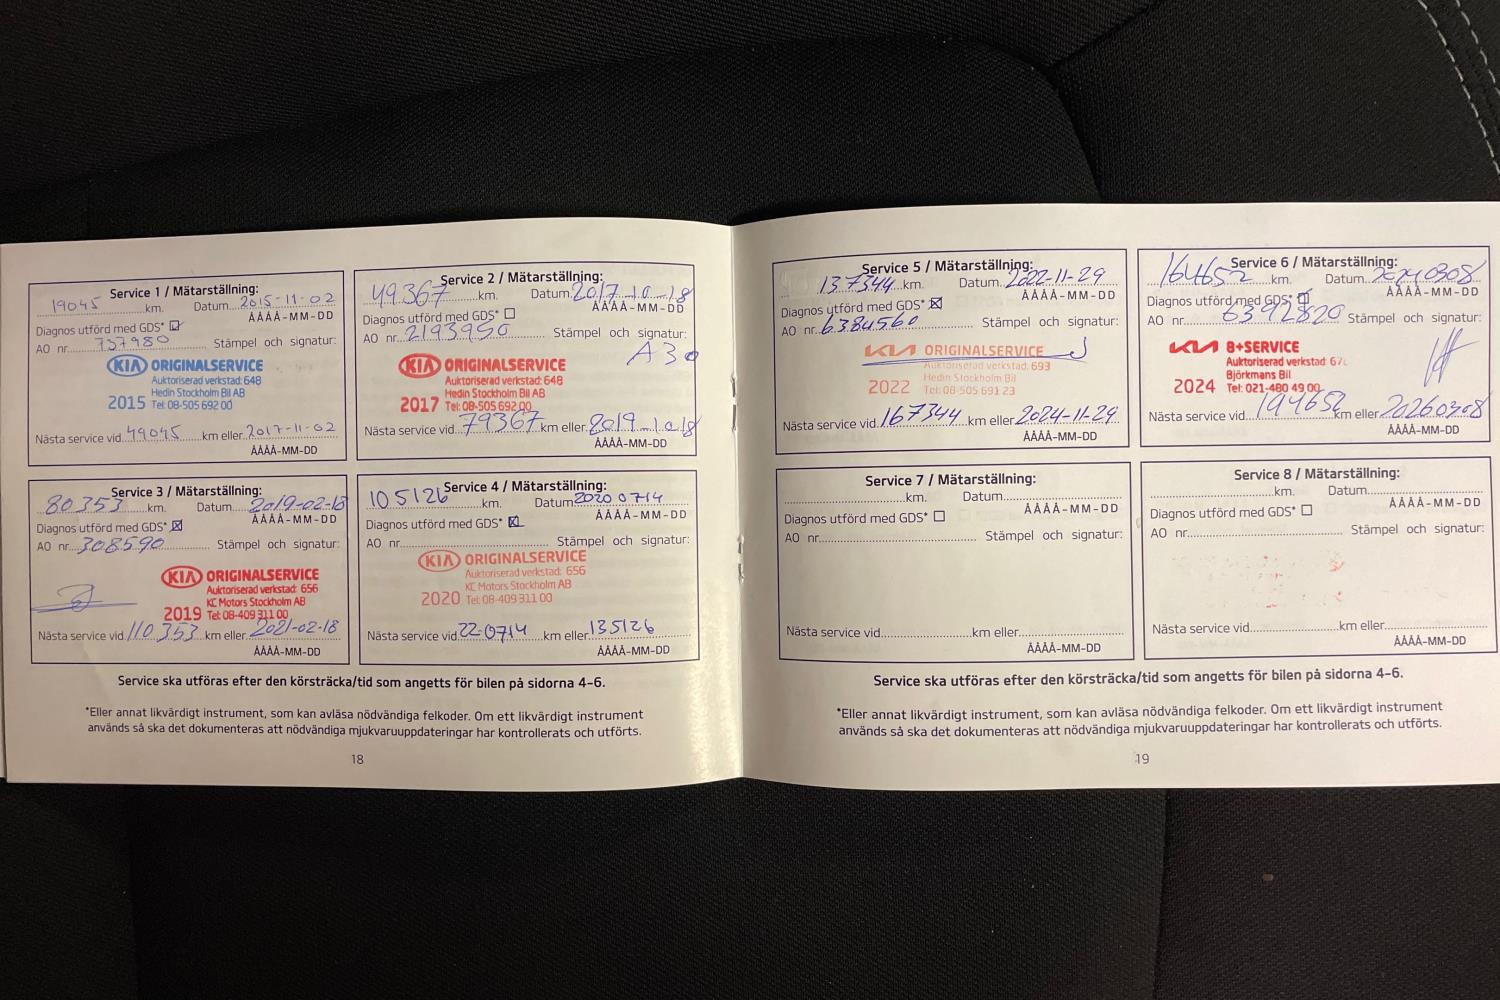 Service 1 / Mätarställning:
19045 km. Datum 2015-11-02
ÅÅÅÅ-MM-DD
Diagnos utförd med GDS*
AO nr. 737980 Stämpel och signatur:
KIA ORIGINALSERVICE
Auktoriserad verkstad: 648
Hedin Stockholm Bil AB
2015 Tel: 08-505 692 00
Nästa service vid 49045 km eller 2017-11-02
ÅÅÅÅ-MM-DD
Service 2 / Mätarställning:
49367 km. Datum 2017-10-18
ÅÅÅÅ-MM-DD
Diagnos utförd med GDS*
AO nr. 2193950 Stämpel och signatur:
A30
KIA ORIGINALSERVICE
Auktoriserad verkstad: 648
Hedin Stockholm Bil AB
2017 Tel: 08-505 692 00
Nästa service vid 79367 km eller 2019-10-18
ÅÅÅÅ-MM-DD
Service 3 / Mätarställning:
80353 km. Datum 2019-02-18
ÅÅÅÅ-MM-DD
Diagnos utförd med GDS*
AO nr. 308590 Stämpel och signatur:
KIA ORIGINALSERVICE
Auktoriserad verkstad: 656
KC Motors Stockholm AB
2019 Tel: 08-409 311 00
Nästa service vid 110353 km eller 2021-02-18
ÅÅÅÅ-MM-DD
Service 4 / Mätarställning:
105126 km. Datum 20200714
ÅÅÅÅ-MM-DD
Diagnos utförd med GDS*
AO nr. Stämpel och signatur:
KIA ORIGINALSERVICE
Auktoriserad verkstad: 656
KC Motors Stockholm AB
2020 Tel: 08-409 311 00
Nästa service vid 22-0714 km eller 135126
ÅÅÅÅ-MM-DD
Service ska utföras efter den körsträcka/tid som angetts för bilen på sidorna 4-6.
*Eller annat likvärdigt instrument, som kan avläsa nödvändiga felkoder. Om ett likvärdigt instrument
används så ska det dokumenteras att nödvändiga mjukvaruuppdateringar har kontrollerats och utförts.
18
Service 5 / Mätarställning:
137344 km. Datum 2022-11-29
ÅÅÅÅ-MM-DD
Diagnos utförd med GDS*
AO nr. 6384560 Stämpel och signatur:
KIA ORIGINALSERVICE
Auktoriserad verkstad: 693
Hedin Stockholm Bil
2022 Tel: 08-505 691 23
Nästa service vid 167344 km eller 2024-11-29
ÅÅÅÅ-MM-DD
Service 6 / Mätarställning:
164652 km. Datum 20240308
ÅÅÅÅ-MM-DD
Diagnos utförd med GDS*
AO nr. 6392820 Stämpel och signatur:
KIA 8+SERVICE
Auktoriserad verkstad:
Björkmans Bil
2024 Tel: 021-480 49 00
Nästa service vid 194652 km eller 20260308
ÅÅÅÅ-MM-DD
Service 7 / Mätarställning:
km. Datum
ÅÅÅÅ-MM-DD
Diagnos utförd med GDS*
AO nr. Stämpel och signatur:
Nästa service vid km eller
ÅÅÅÅ-MM-DD
Service 8 / Mätarställning:
km. Datum
ÅÅÅÅ-MM-DD
Diagnos utförd med GDS*
AO nr. Stämpel och signatur:
Nästa service vid km eller
ÅÅÅÅ-MM-DD
Service ska utföras efter den körsträcka/tid som angetts för bilen på sidorna 4-6.
*Eller annat likvärdigt instrument, som kan avläsa nödvändiga felkoder. Om ett likvärdigt instrument
används så ska det dokumenteras att nödvändiga mjukvaruuppdateringar har kontrollerats och utförts.
19